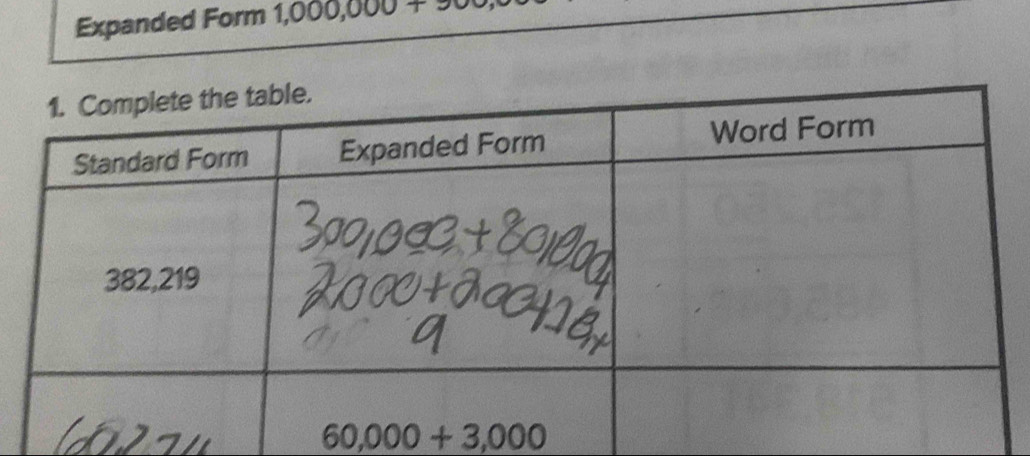 Expanded Form 1,000,000 +
1. Complete the table.
Standard Form Expanded Form Word Form
382,219
300,000 + 80,000+
2000+200+10+
9
60,000 + 3,000